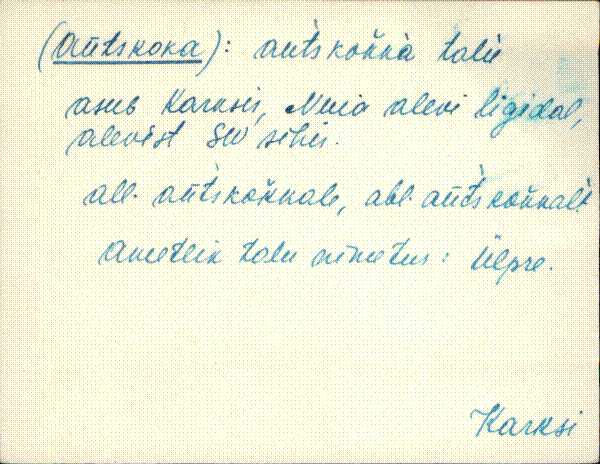 (aũtskoka): aũtskoǩkà talù
asub Karksis, Nuia alevi ligidal,
alevist SW sihis.
all. aũtskoǩkale, abl. aũtskoǩkalt
ametlik talu nimetus: Ülpre.
Karksi